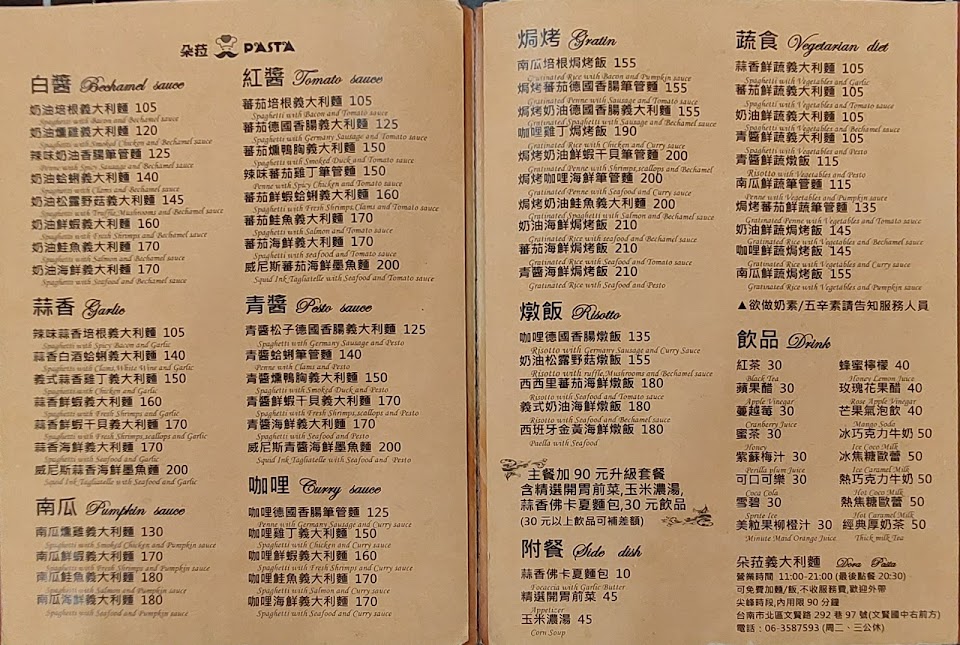 朵菈 PASTA
白醬 Bechamel sauce
奶油培根義大利麵 105
Spaghetti with Bacon and Bechamel sauce
奶油燻雞義大利麵 120
Spaghetti with Smoked Chicken and Bechamel sauce
辣味奶油香腸筆管麵 125
Penne with Spicy Sausage and Bechamel sauce
奶油蛤蜊義大利麵 140
Spaghetti with Clams and Bechamel sauce
奶油松露野菇義大利麵 145
Spaghetti with Truffle,Mushrooms and Bechamel sauce
奶油鮮蝦義大利麵 160
Spaghetti with Fresh Shrimps and Bechamel sauce
奶油鮭魚義大利麵 170
Spaghetti with Salmon and Bechamel sauce
奶油海鮮義大利麵 170
Spaghetti with Seafood and Bechamel sauce
蒜香 Garlic
辣味蒜香培根義大利麵 105
Spaghetti with Spicy Bacon and Garlic
蒜香白酒蛤蜊義大利麵 140
Spaghetti with Clams,White Wine and Garlic
義式蒜香雞丁義大利麵 150
Spaghetti with Chicken and Garlic
蒜香鮮蝦義大利麵 160
Spaghetti with Fresh Shrimps and Garlic
蒜香鮮蝦干貝義大利麵 170
Spaghetti with Fresh Shrimps,scallops and Garlic
蒜香海鮮義大利麵 170
Spaghetti with Seafood and Garlic
威尼斯蒜香海鮮墨魚麵 200
Squid Ink Tagliatelle with Seafood and Garlic
南瓜 Pumpkin sauce
南瓜燻雞義大利麵 130
Spaghetti with Smoked Chicken and Pumpkin sauce
南瓜鮮蝦義大利麵 170
Spaghetti with Fresh Shrimps and Pumpkin sauce
南瓜鮭魚義大利麵 180
Spaghetti with Salmon and Pumpkin sauce
南瓜海鮮義大利麵 180
Spaghetti with Seafood and Pumpkin sauce
紅醬 Tomato sauce
蕃茄培根義大利麵 105
Spaghetti with Bacon and Tomato sauce
蕃茄德國香腸義大利麵 125
Spaghetti with Germany Sausage and Tomato sauce
蕃茄燻鴨胸義大利麵 150
Spaghetti with Smoked Duck and Tomato sauce
辣味蕃茄雞丁筆管麵 150
Penne with Spicy Chicken and Tomato sauce
蕃茄鮮蝦蛤蜊義大利麵 160
Spaghetti with Fresh Shrimps,Clams and Tomato sauce
蕃茄鮭魚義大利麵 170
Spaghetti with Salmon and Tomato sauce
蕃茄海鮮義大利麵 170
Spaghetti with Seafood and Tomato sauce
威尼斯蕃茄海鮮墨魚麵 200
Squid Ink Tagliatelle with Seafood and Tomato sauce
青醬 Pesto sauce
青醬松子德國香腸義大利麵 125
Spaghetti with Germany Sausage and Pesto
青醬蛤蜊筆管麵 140
Penne with Clams and Pesto
青醬燻鴨胸義大利麵 150
Spaghetti with Smoked Duck and Pesto
青醬鮮蝦干貝義大利麵 170
Spaghetti with Fresh Shrimps,scallops and Pesto
青醬海鮮義大利麵 170
Spaghetti with Seafood and Pesto
威尼斯青醬海鮮墨魚麵 200
Squid Ink Tagliatelle with Seafood and Pesto
咖哩 Curry sauce
咖哩德國香腸筆管麵 125
Penne with Germany Sausage and Curry sauce
咖哩雞丁義大利麵 150
Spaghetti with Chicken and Curry sauce
咖哩鮮蝦義大利麵 160
Spaghetti with Fresh Shrimps and Curry sauce
咖哩鮭魚義大利麵 170
Spaghetti with Salmon and Curry sauce
咖哩海鮮義大利麵 170
Spaghetti with Seafood and Curry sauce
焗烤 Gratin
南瓜培根焗烤飯 155
Gratinated Rice with Bacon and Pumpkin sauce
焗烤蕃茄德國香腸筆管麵 155
Gratinated Penne with Sausage and Tomato sauce
焗烤奶油德國香腸義大利麵 155
Gratinated Spaghetti with Sausage and Bechamel sauce
咖哩雞丁焗烤飯 190
Gratinated Rice with Chicken and Curry sauce
焗烤奶油鮮蝦干貝筆管麵 200
Gratinated Penne with Shrimps,scallops and Bechamel
焗烤咖哩海鮮筆管麵 200
Gratinated Penne with Seafood and Curry sauce
焗烤奶油鮭魚義大利麵 200
Gratinated Spaghetti with Salmon and Bechamel sauce
奶油海鮮焗烤飯 210
Gratinated Rice with seafood and Bechamel sauce
蕃茄海鮮焗烤飯 210
Gratinated Rice with Seafood and Tomato sauce
青醬海鮮焗烤飯 210
Gratinated Rice with Seafood and Pesto
燉飯 Risotto
咖哩德國香腸燉飯 135
Risotto with Germany Sausage and Curry Sauce
奶油松露野菇燉飯 155
Risotto with ruffle,Mushrooms and Bechamel sauce
西西里蕃茄海鮮燉飯 180
Risotto with Seafood and Tomato sauce
義式奶油海鮮燉飯 180
Risotto with Seafood and Bechamel sauce
西班牙金黃海鮮燉飯 180
Paella with Seafood
主餐加 90 元升級套餐
含精選開胃前菜,玉米濃湯,
蒜香佛卡夏麵包,30 元飲品
(30 元以上飲品可補差額)
附餐 Side dish
蒜香佛卡夏麵包 10
Focaccia with Garlic Butter
精選開胃前菜 45
Appetizer
玉米濃湯 45
Corn Soup
蔬食 Vegetarian diet
蒜香鮮蔬義大利麵 105
Spaghetti with Vegetables and Garlic
蕃茄鮮蔬義大利麵 105
Spaghetti with Vegetables and Tomato sauce
奶油鮮蔬義大利麵 105
Spaghetti with Vegetables and Bechamel sauce
青醬鮮蔬義大利麵 105
Spaghetti with Vegetables and Pesto
青醬鮮蔬燉飯 115
Risotto with Vegetables and Pesto
南瓜鮮蔬筆管麵 115
Penne with Vegetables and Pumpkin sauce
焗烤蕃茄鮮蔬筆管麵 135
Gratinated Penne with Vegetables and Tomato sauce
奶油鮮蔬焗烤飯 145
Gratinated Rice with Vegetables and Bechamel sauce
咖哩鮮蔬焗烤飯 145
Gratinated Rice with Vegetables and Curry sauce
南瓜鮮蔬焗烤飯 155
Gratinated Rice with Vegetables and Pumpkin sauce
▲欲做奶素/五辛素請告知服務人員
飲品 Drink
紅茶 30 蜂蜜檸檬 40
Black Tea Honey Lemon Juice
蘋果醋 30 玫瑰花果醋 40
Apple Vinegar Rose Apple Vinegar
蔓越莓 30 芒果氣泡飲 40
Cranberry Juice Mango Soda
蜜茶 30 冰巧克力牛奶 50
Honey Ice Coco Milk
紫蘇梅汁 30 冰焦糖歐蕾 50
Perilla plum Juice Ice Caramel Milk
可口可樂 30 熱巧克力牛奶 50
Coca Cola Hot Coco Milk
雪碧 30 熱焦糖歐蕾 50
Sprite Ice Hot Caramel Milk
美粒果柳橙汁 30 經典厚奶茶 50
Minute Maid Orange Juice Thick milk Tea
朵菈義大利麵 Dora Pasta
營業時間 11:00-21:00 (最後點餐 20:30)
可免費加麵/飯,不收服務費,歡迎外帶
尖峰時段,內用限 90 分鐘
台南市北區文賢路 292 巷 97 號(文賢國中右前方)
電話：06-3587593 (周二、三公休)